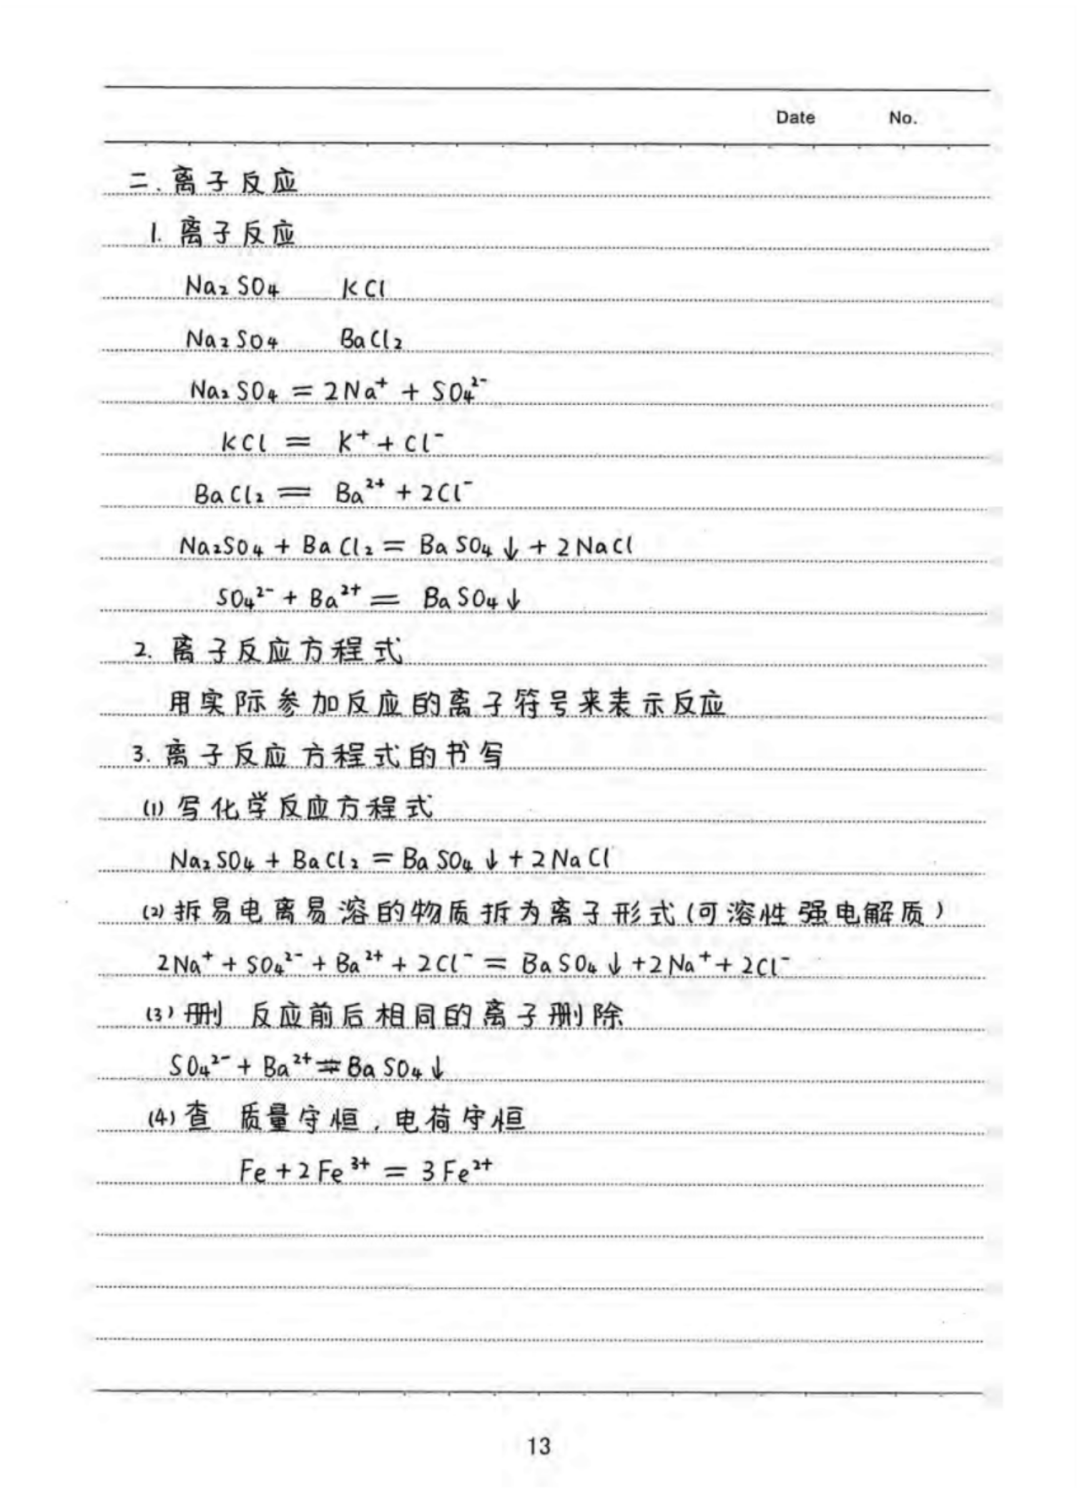 Date No.
二.离子反应
1. 离子反应
Na₂SO₄ KCl
Na₂SO₄ BaCl₂
Na₂SO₄ = 2Na⁺ + SO₄²⁻
KCl = K⁺ + Cl⁻
BaCl₂ = Ba²⁺ + 2Cl⁻
Na₂SO₄ + BaCl₂ = BaSO₄↓ + 2NaCl
SO₄²⁻ + Ba²⁺ = BaSO₄↓
2. 离子反应方程式
用实际参加反应的离子符号来表示反应
3. 离子反应方程式的书写
(1) 写化学反应方程式
Na₂SO₄ + BaCl₂ = BaSO₄↓ + 2NaCl
(2) 拆易电离易溶的物质拆为离子形式(可溶性强电解质)
2Na⁺ + SO₄²⁻ + Ba²⁺ + 2Cl⁻ = BaSO₄↓ + 2Na⁺ + 2Cl⁻
(3) 删 反应前后相同的离子删除
SO₄²⁻ + Ba²⁺ = BaSO₄↓
(4) 查 质量守恒,电荷守恒
Fe + 2Fe³⁺ = 3Fe²⁺
13